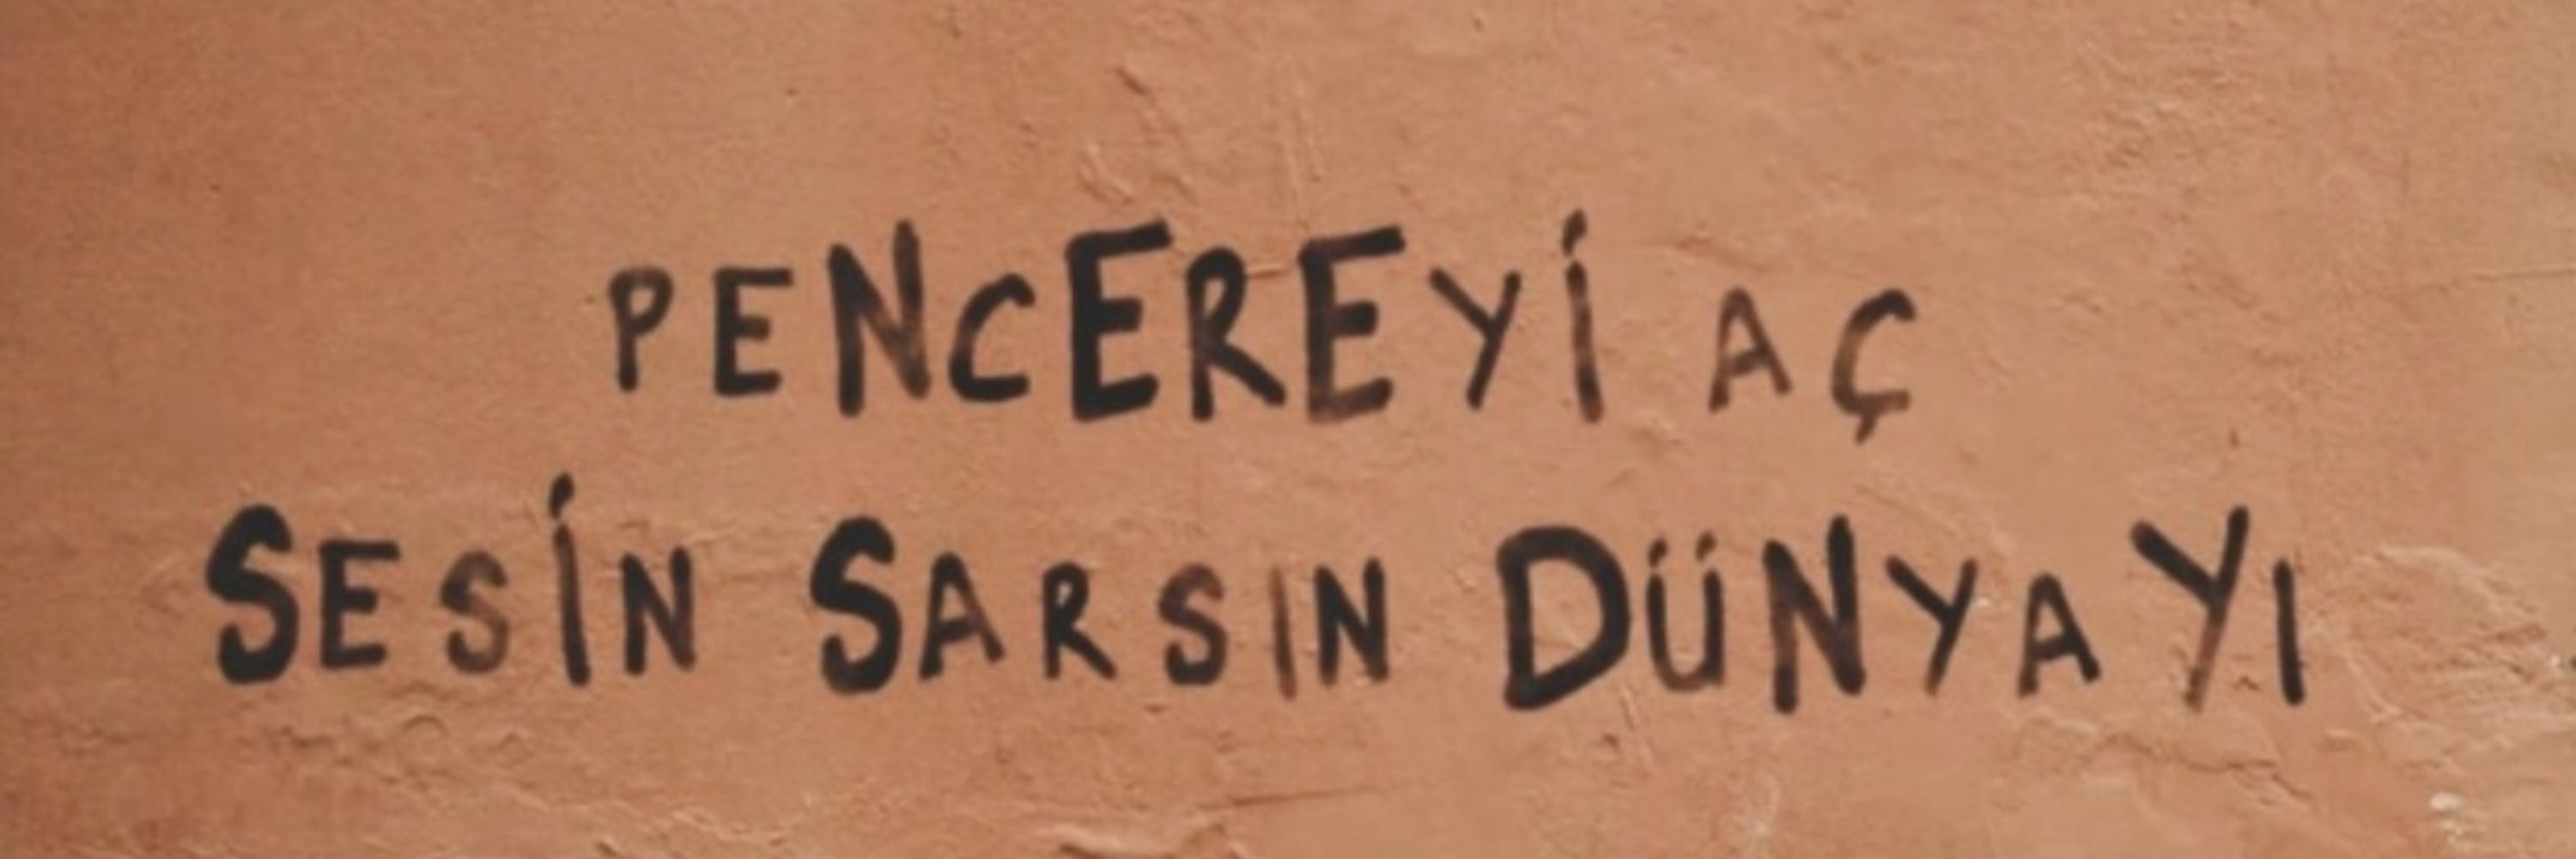 PENCEREYİ AÇ
SESİN SARSIN DÜNYAYI